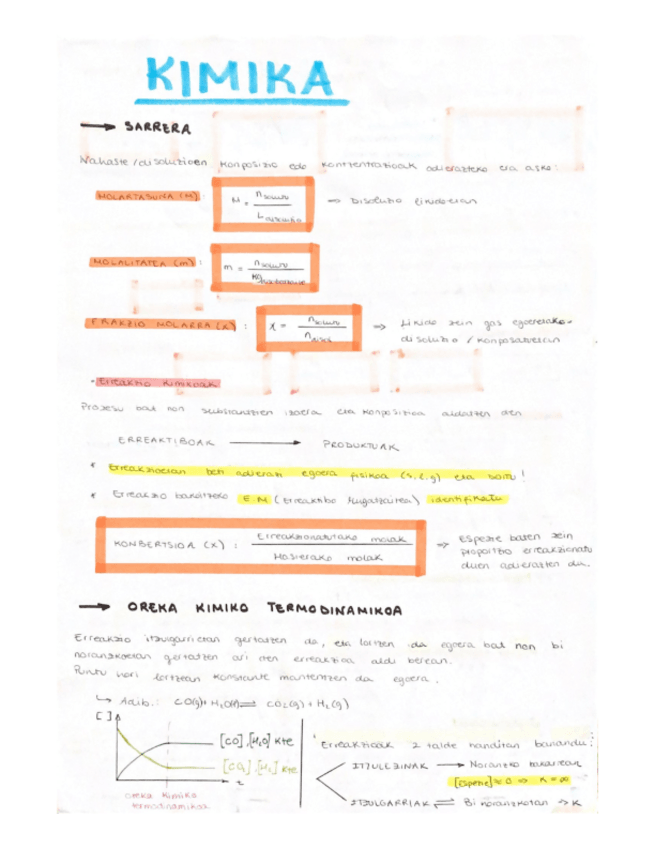 KIMIKA
→ SARRERA
Nahaste/disoluzioen konposizio edo kontzentrazioak adierazteko era asko:
MOLARTASUNA (M): M = n solutu / L disoluzio ⇒ Disoluzio likidoetan
MOLALITATEA (m): m = n solutu / kg
FRAKZIO MOLARRA (X): X = n solutu / n disol ⇒ Likido zein gas egoerako
disoluzio / konposatuetan
• Erreakzio kimikoak
Prozesu bat non substantzien izaera eta konposizioa aldatzen den
ERREAKTIBOAK → PRODUKTUAK
* Erreakzioetan beti adierazi egoera fisikoa (s, l, g) eta doitu!
* Erreakzio bakoitzeko E.M (Erreaktibo Mugatzailea) identifikatu
KONBERTSIOA (X): Erreakzionatutako molak / Hasierako molak ⇒ Espezie baten zein
proportzio erreakzionatu
duen adierazten du.
→ OREKA KIMIKO TERMODINAMIKOA
Erreakzio itzulgarrietan gertatzen da, eta lortzen da egoera bat non bi
noranzkoetan gertatzen ari den erreakzioa aldi berean.
Puntu hori lortzean konstante mantentzen da egoera.
↳ Adib.: CO(g) + H₂O(g) ⇌ CO₂(g) + H₂(g)
[ ]
[CO], [H₂O] kte
[CO₂], [H₂] kte
t
oreka kimiko
termodinamikoa
* Erreakzioak 2 talde handitan banandu:
ITZULEZINAK → Noranzko bakarrean
[espezie] ≈ 0 ⇒ K = ∞
ITZULGARRIAK ⇌ Bi noranzkotan → K